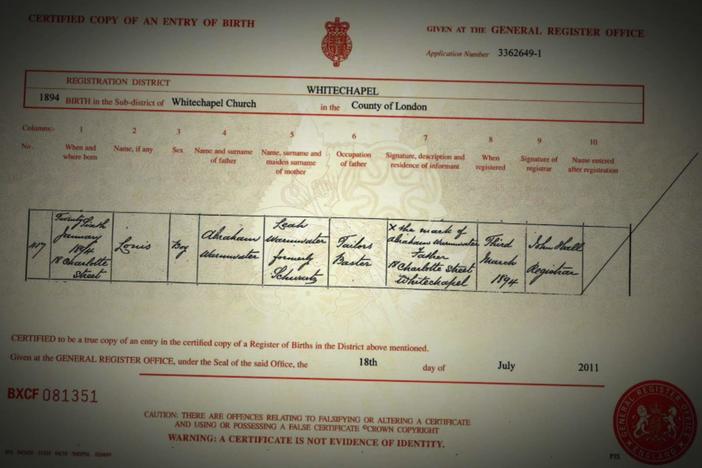 CERTIFIED COPY OF AN ENTRY OF BIRTH
GIVEN AT THE GENERAL REGISTER OFFICE
Application Number 3362649-1
REGISTRATION DISTRICT WHITECHAPEL
1894 BIRTH in the Sub-district of Whitechapel Church in the County of London
Columns:- 1 2 3 4 5 6 7 8 9 10
No. When and where born Name, if any Sex Name and surname of father Name, surname and maiden surname of mother Occupation of father Signature, description and residence of informant When registered Signature of registrar Name entered after registration
January
1894
Charlotte
Street
Louis
Boy
Abraham
Warmwater
Leah
Warmwater
formerly
Schwartz
Tailors
Baster
X The mark of
Abraham Warmwater
Father
Charlotte Street
Whitechapel
Third
March
1894
John Hall
Registrar
CERTIFIED to be a true copy of an entry in the certified copy of a Register of Births in the District above mentioned.
Given at the GENERAL REGISTER OFFICE, under the Seal of the said Office, the 18th day of July 2011
BXCF 081351
CAUTION: THERE ARE OFFENCES RELATING TO FALSIFYING OR ALTERING A CERTIFICATE
AND USING OR POSSESSING A FALSE CERTIFICATE ©CROWN COPYRIGHT
WARNING: A CERTIFICATE IS NOT EVIDENCE OF IDENTITY.
GENERAL REGISTER OFFICE
ENGLAND